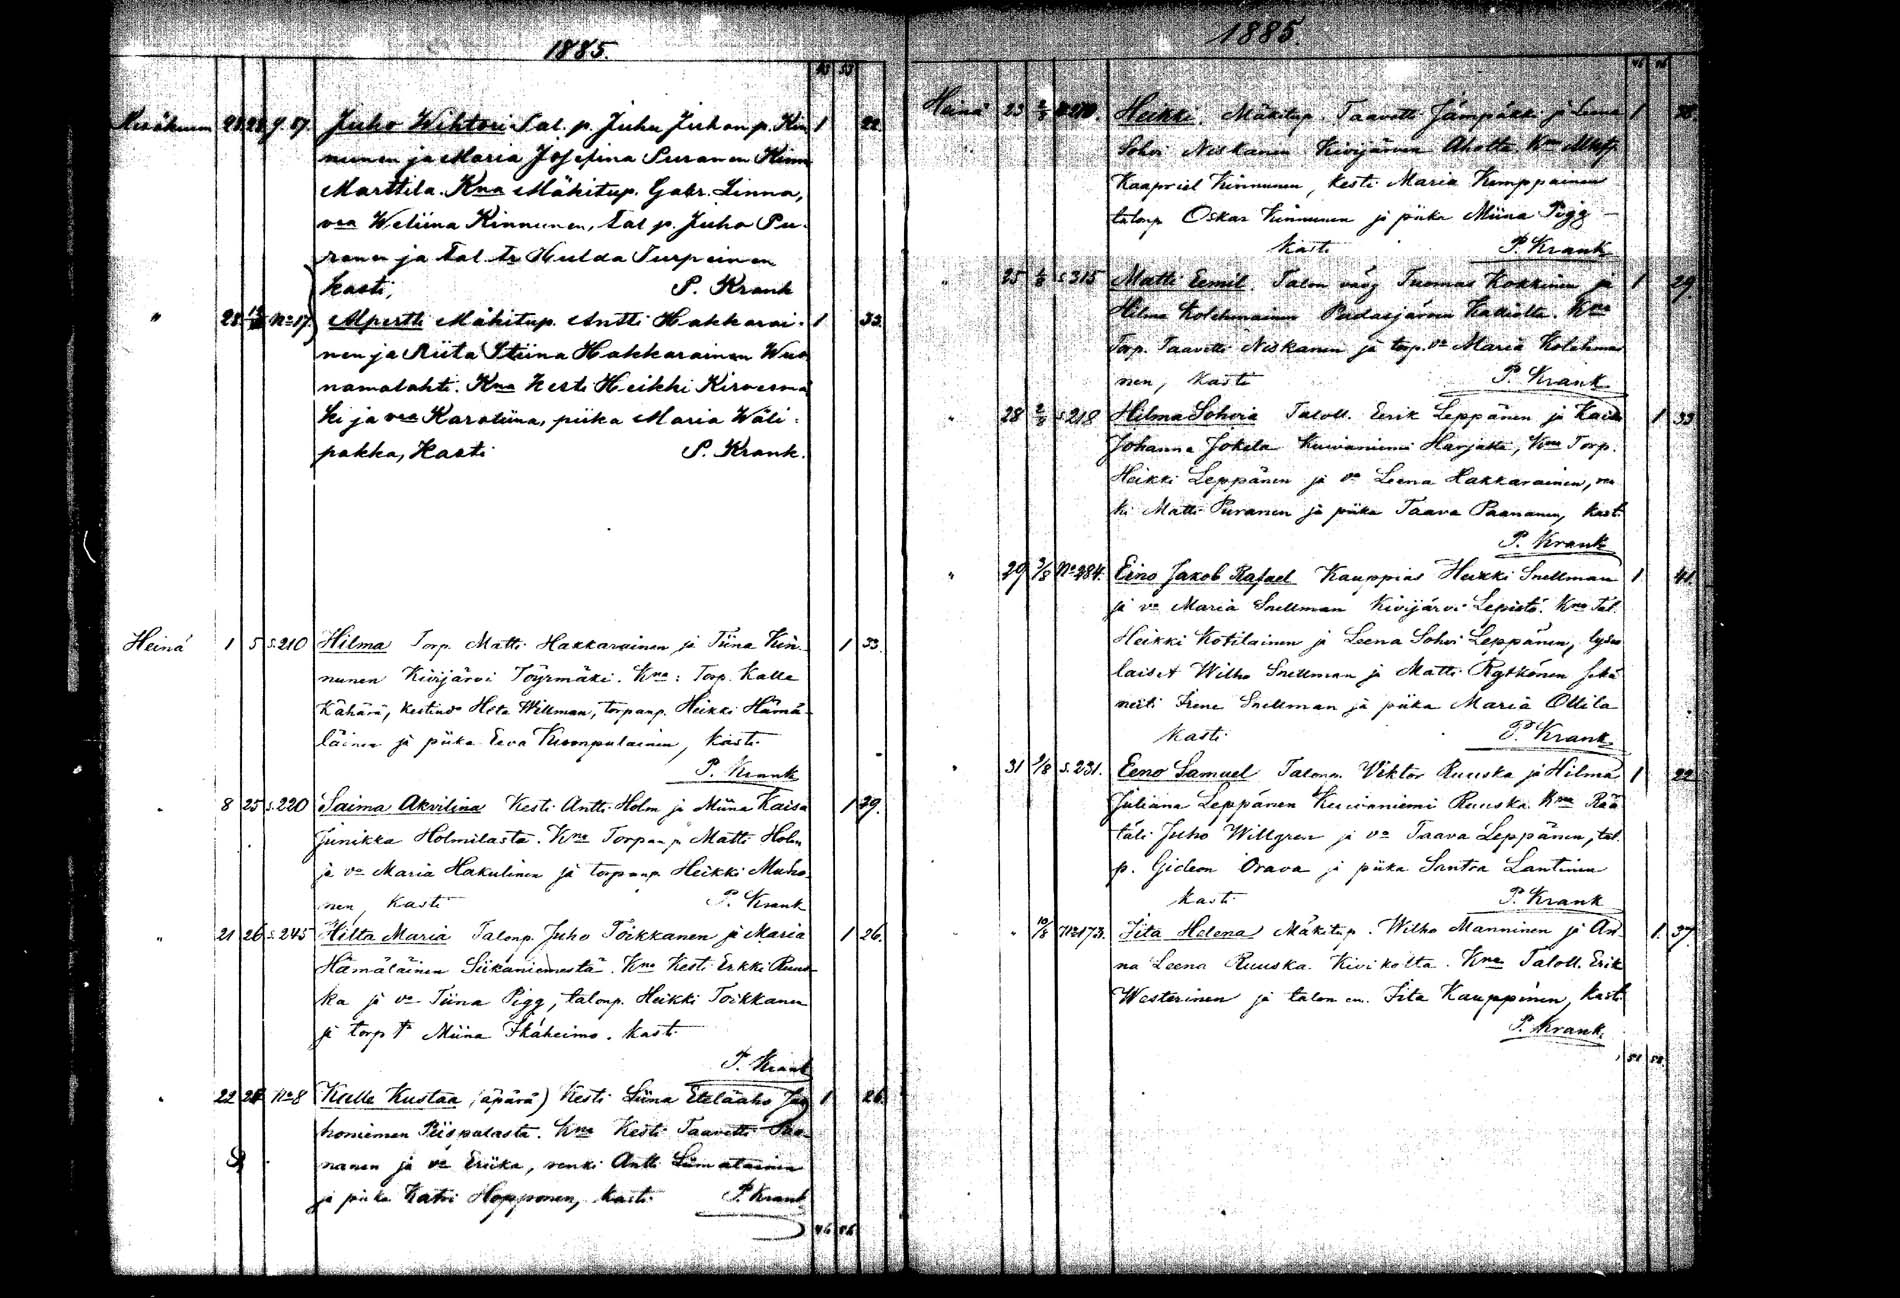 1885.
Kesäkuun 28 28 Juho Wihtori Tal. p. Juho Juhonp. Kin 1 22
nunen ja Maria Josefina Puranen Kinn
Marttila. Kna Mäkitup. Gabr. Linna,
vaa Weliina Kinnunen, tal p. Juho Pu-
ranen ja tal. tr Hulda Turpeinen
kasti, P. Krank
" 28 No 17. Alpertti Mäkitup. Antti Hakkarai- 1 33.
nen ja Riita Stiina Hakkarainen
namalahti. Kna Kesti Heikki Kirvesmä
ki ja vaa Karoliina, piika Maria Wäli-
pakka, Kasti P. Krank.
Heinä 1 5 s. 210 Hilma Torp. Matti Hakkarainen ja Tiina Kin- 1 33
nunen Kivijärvi Töyrmäki. Kna: Torp. Kalle
Kähärä, Heta Willman, torpanp. Heikki Hämä-
läinen ja piika Eeva Kumpulainen, kasti
P. Krank
8 25 s. 220 Saima Akvilina Kesti Antti Holm ja Miina Kaisa 1 29.
Junikka Holmilasta. Kna Torpan p Matti Holm
ja va Maria Hakulinen ja torpanp Heikki Muho-
nen, kasti P. Krank
" 21 26 s. 245 Hilta Maria Talonp. Juho Toikkanen ja Maria 1 26.
Hämäläinen Siikaniemestä. Kna Kesti Erkki Ruus-
ka ja va Tiina Pigg, talonp. Heikki Toikkanen
ja torp tr Miina Ikäheimo. kasti
P. Krank
22 No 8 Kalle Kustaa (äpärä) Kesti Liina Eteläaho 1 26.
honiemen Piispalasta. Kna Kesti Taavetti Paa-
nanen ja va Eriika, renki Antti Liimatainen
ja piika Katri Hopponen, kasti P. Krank
46 56
1885.
46 56
Heinä 23 Heikki. Mäkitup. Taavetti Jämpäkk ja Leena 1 28.
Sohvi Niskanen Kivijärven Aholta. Kna
Kaapriel Kinnunen, kesti Maria Kemppainen
talonp Oskar Kinnunen ja piika Miina Pigg
kasti P. Krank
25 s. 315 Matti Eemil. Talon väv Tuomas Kokkinen ja 1 29.
Hilma Kolehmainen Pudasjärven Kna
Torp. Taavetti Niskanen ja torp. va Maria Kolehmai
nen, kasti P. Krank
" 28 s. 218 Hilma Sohvia Taloll. Eerik Leppänen ja Kaisa 1 33
Johanna Jokela Kuivaniemi Harjulta, Kna Torp.
Heikki Leppänen ja va Leena Hakkarainen, ren
ki Matti Puranen ja piika Taava Paananen, kasti
P. Krank
" 29 2/8 No 284. Eino Jakob Rafael Kauppias Heikki Snellman 1 41.
ja va Maria Snellman Kivijärvi Lepistö. Kna Tal.
Heikki Kotilainen ja Leena Sohvi Leppänen,
laiset Wilho Snellman ja Matti Rytkönen sekä
neiti Irene Snellman ja piika Maria Ollila
kasti P. Krank
" 31 s. 231. Eeno Samuel Talonp. Viktor Ruuska ja Hilma 1 22
Juliana Leppänen Kuivaniemi Ruuska. Kna Rää
täli Juho Willgren ja va Taava Leppänen, tal.
p. Gideon Orava ja piika Santra Lantinen
kasti P. Krank
" 10/8 No 173. Fita Helena Mäkitup. Wilho Manninen ja An- 1 37
na Leena Ruuska. Kivikolta. Kna Taloll. Erik
Westerinen ja talon em. Fita Kauppinen, kasti
P. Krank.
51 58